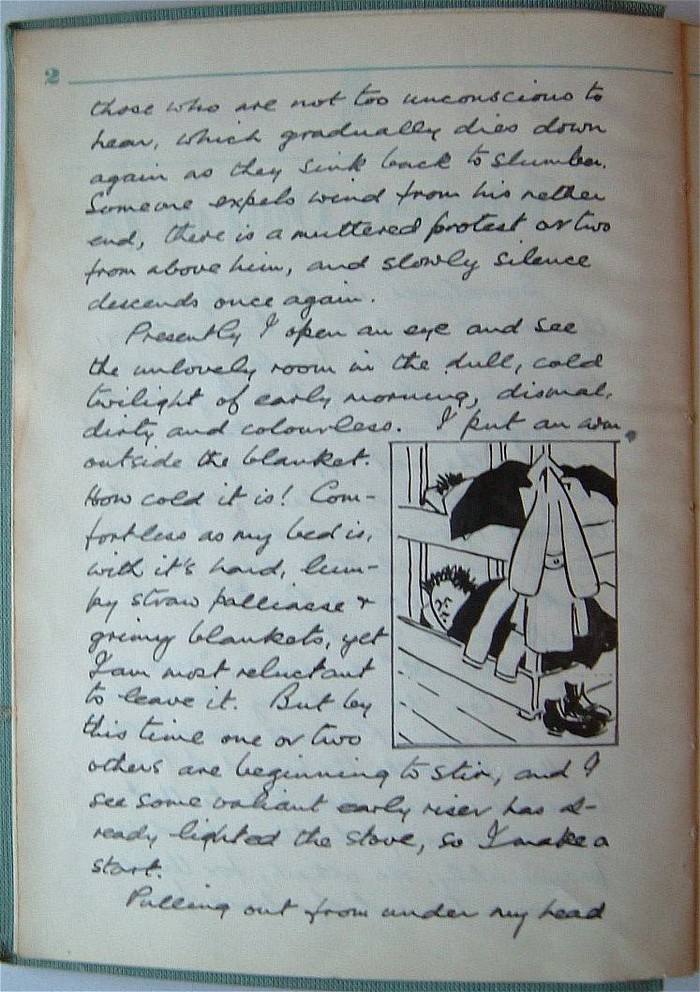 2
those who are not too unconscious to
hear, which gradually dies down
again as they sink back to slumber.
Someone expels wind from his nether
end, there is a muttered protest or two
from above him, and slowly silence
descends once again.
Presently I open an eye and see
the unlovely room in the dull, cold
twilight of early morning, dismal,
dirty and colourless. I put an arm
outside the blanket.
How cold it is! Com-
fortless as my bed is,
with it's hard, lum-
py straw palliasse +
grimy blankets, yet
I am most reluctant
to leave it. But by
this time one or two
others are beginning to stir, and I
see some valiant early riser has al-
ready lighted the stove, so I make a
start.
Pulling out from under my head